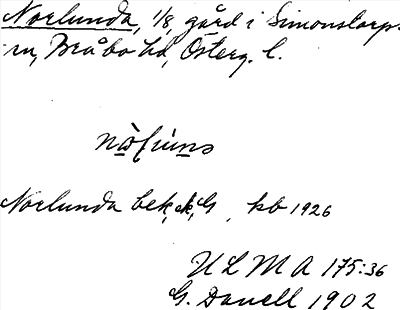 Norlunda, 1/8, gård i Simonstorps
sn, Bråbo hd, Österg. l.
Norlunda bek, ek, G, kb 1926
ULMA 175:36
G. Danell 1902